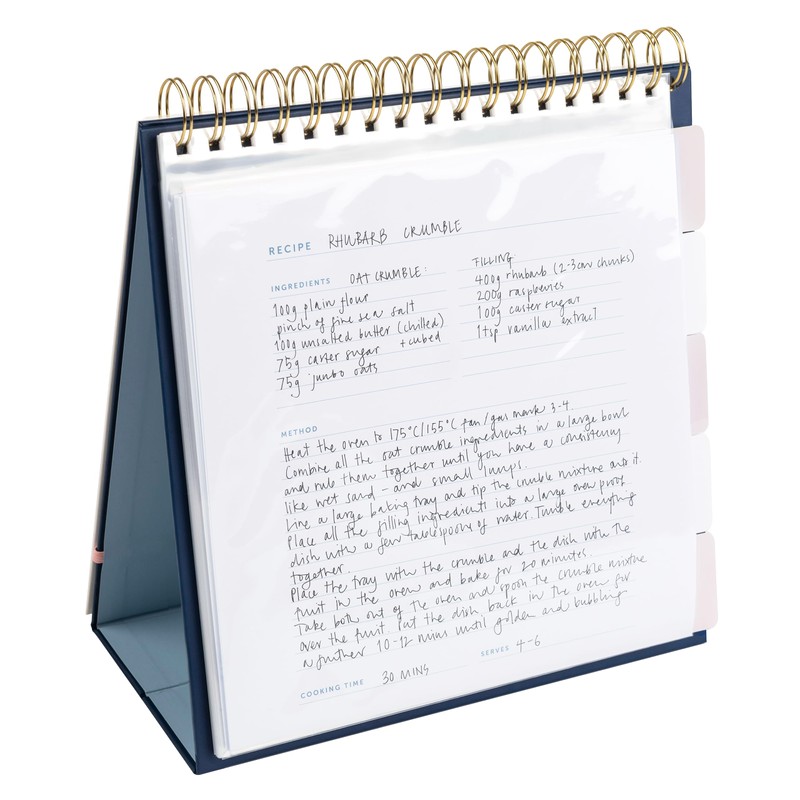 RECIPE RHUBARB CRUMBLE
INGREDIENTS OAT CRUMBLE:
100g plain flour
pinch of fine sea salt
100g unsalted butter (chilled)
+ cubed
75g caster sugar
75g jumbo oats
FILLING
400g rhubarb (2-3cm chunks)
200g raspberries
100g caster sugar
1tsp vanilla extract
METHOD
Heat the oven to 175°C/155°C fan/gas mark 3-4
Combine all the oat crumble ingredients in a large bowl
and rub them together until you have a consistency
like wet sand - and small lumps.
Line a large baking tray and tip the crumble mixture onto it.
Place all the filling ingredients into a large oven proof
dish with a few tablespoons of water. Tumble everything
together.
Place the tray with the crumble and the dish with the
fruit in the oven and bake for 20 minutes.
Take both out of the oven and spoon the crumble mixture
over the fruit. Put the dish back in the oven for
a further 10-12 mins until golden and bubbling
COOKING TIME 30 MINS
SERVES 4-6